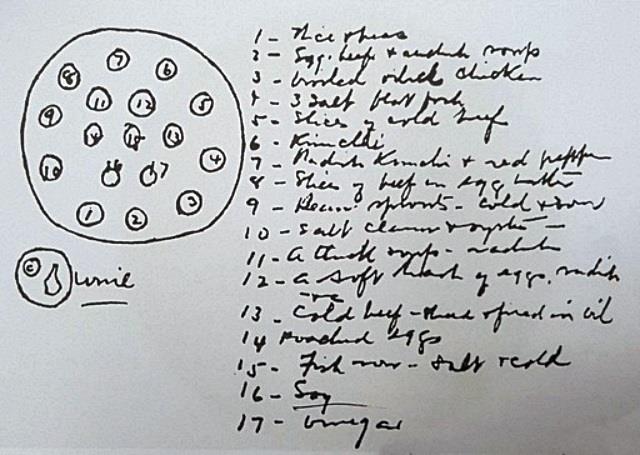 7
8 6
11 12 5
9
14 15 13
10 16 17 4
1 2 3
wine
1 - Rice &
2 - Egg, beef & radish soup
3 - broiled whole chicken
4 - 3 salt flat fish
5 - Slices of cold beef
6 - Kimchi
7 - Radish Kimchi & red pepper
8 - Slices of beef in egg batter
9 - Bean sprouts - cold & sour
10 - Salt clams & oysters
11 - A thick soup - radish
12 - A soft hash of eggs, radish
etc
13 - Cold beef - sliced & fried in oil
14 Poached eggs
15 - Fish roe - salt & cold
16 - Soy
17 - Vinegar